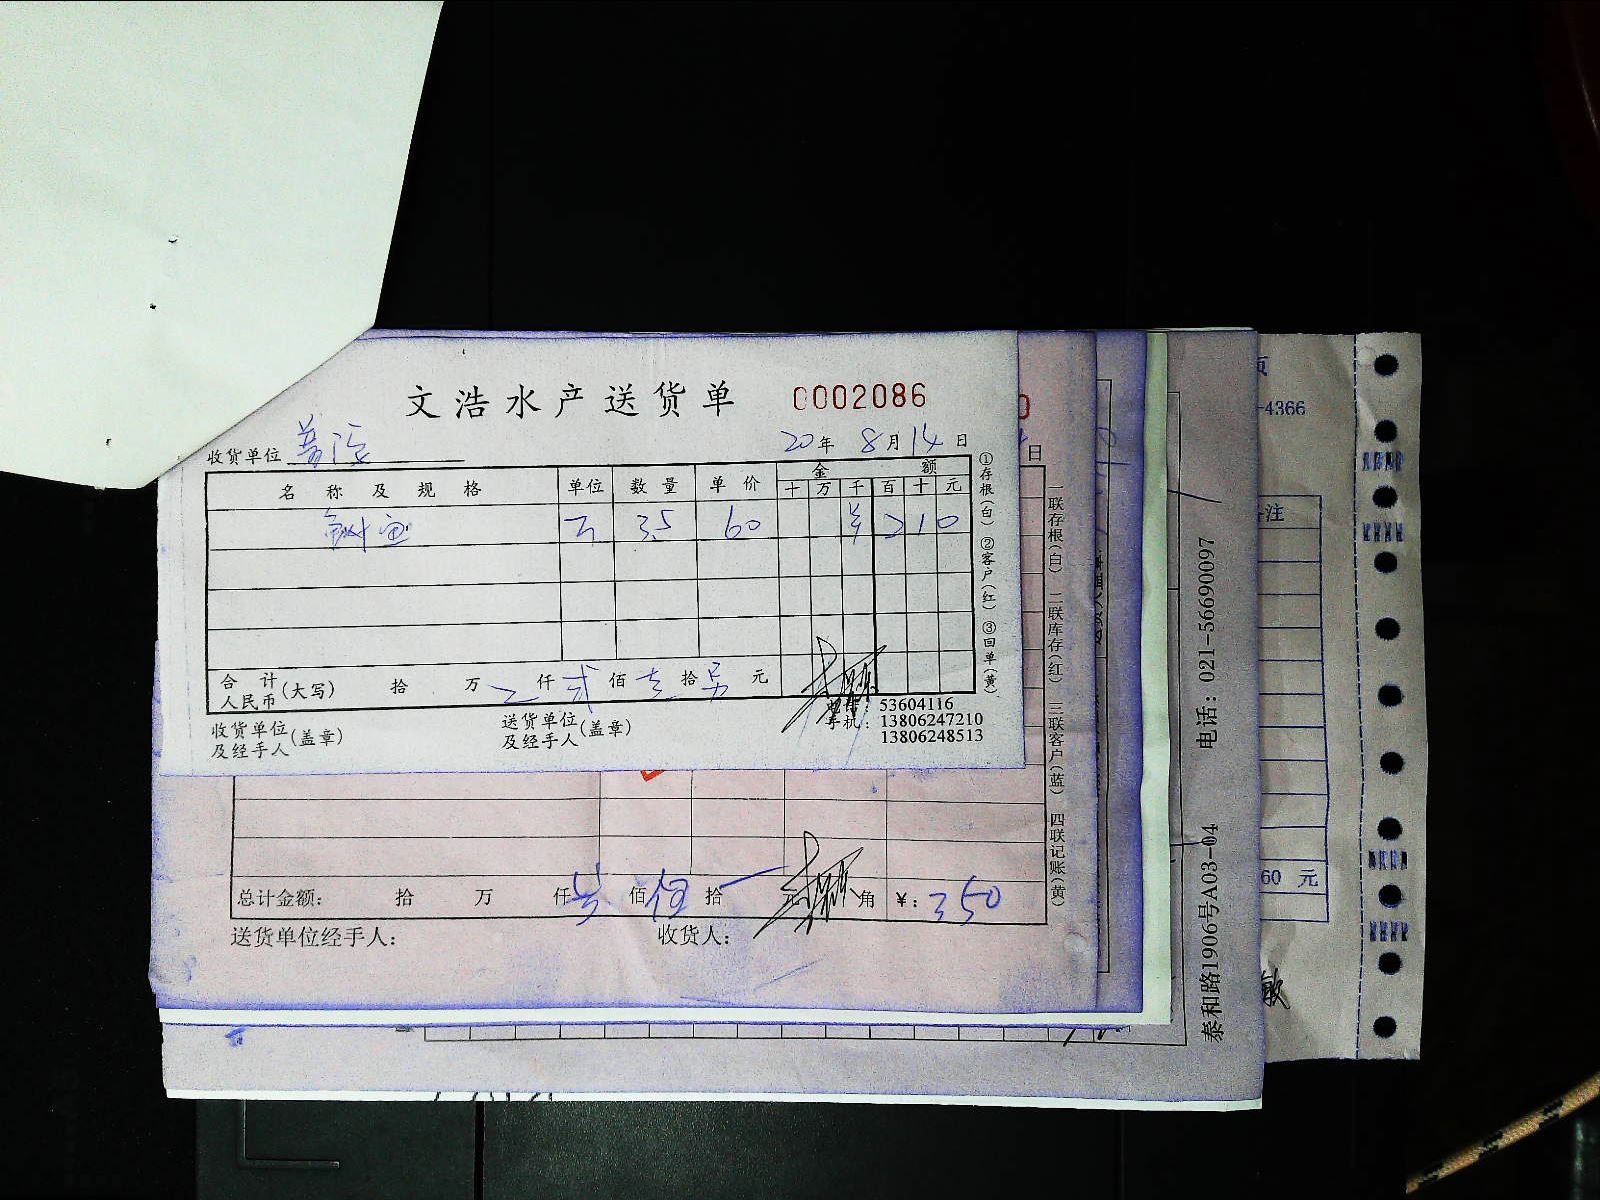 文浩水产送货单 0002086
收货单位
20年 8月14日
名称及规格 单位 数量 单价 金额
十 万 千 百 十 元
3.5 60 ¥ 2 1 0
合计人民币(大写) 拾 万 仟 贰 佰 壹 拾 另 元
电话: 53604116
手机: 13806247210
13806248513
收货单位及经手人(盖章) 送货单位及经手人(盖章)
①存根(白) ②客户(红) ③回单(黄)
日
一联存根(白) 二联库存(红) 三联客户(蓝) 四联记账(黄)
总计金额: 拾 万 仟 佰 伍 拾 元 角 ¥: 350
送货单位经手人: 收货人:
泰和路1906号A03-04 电话: 021-56690097
页
-4366
备注
60 元
敏